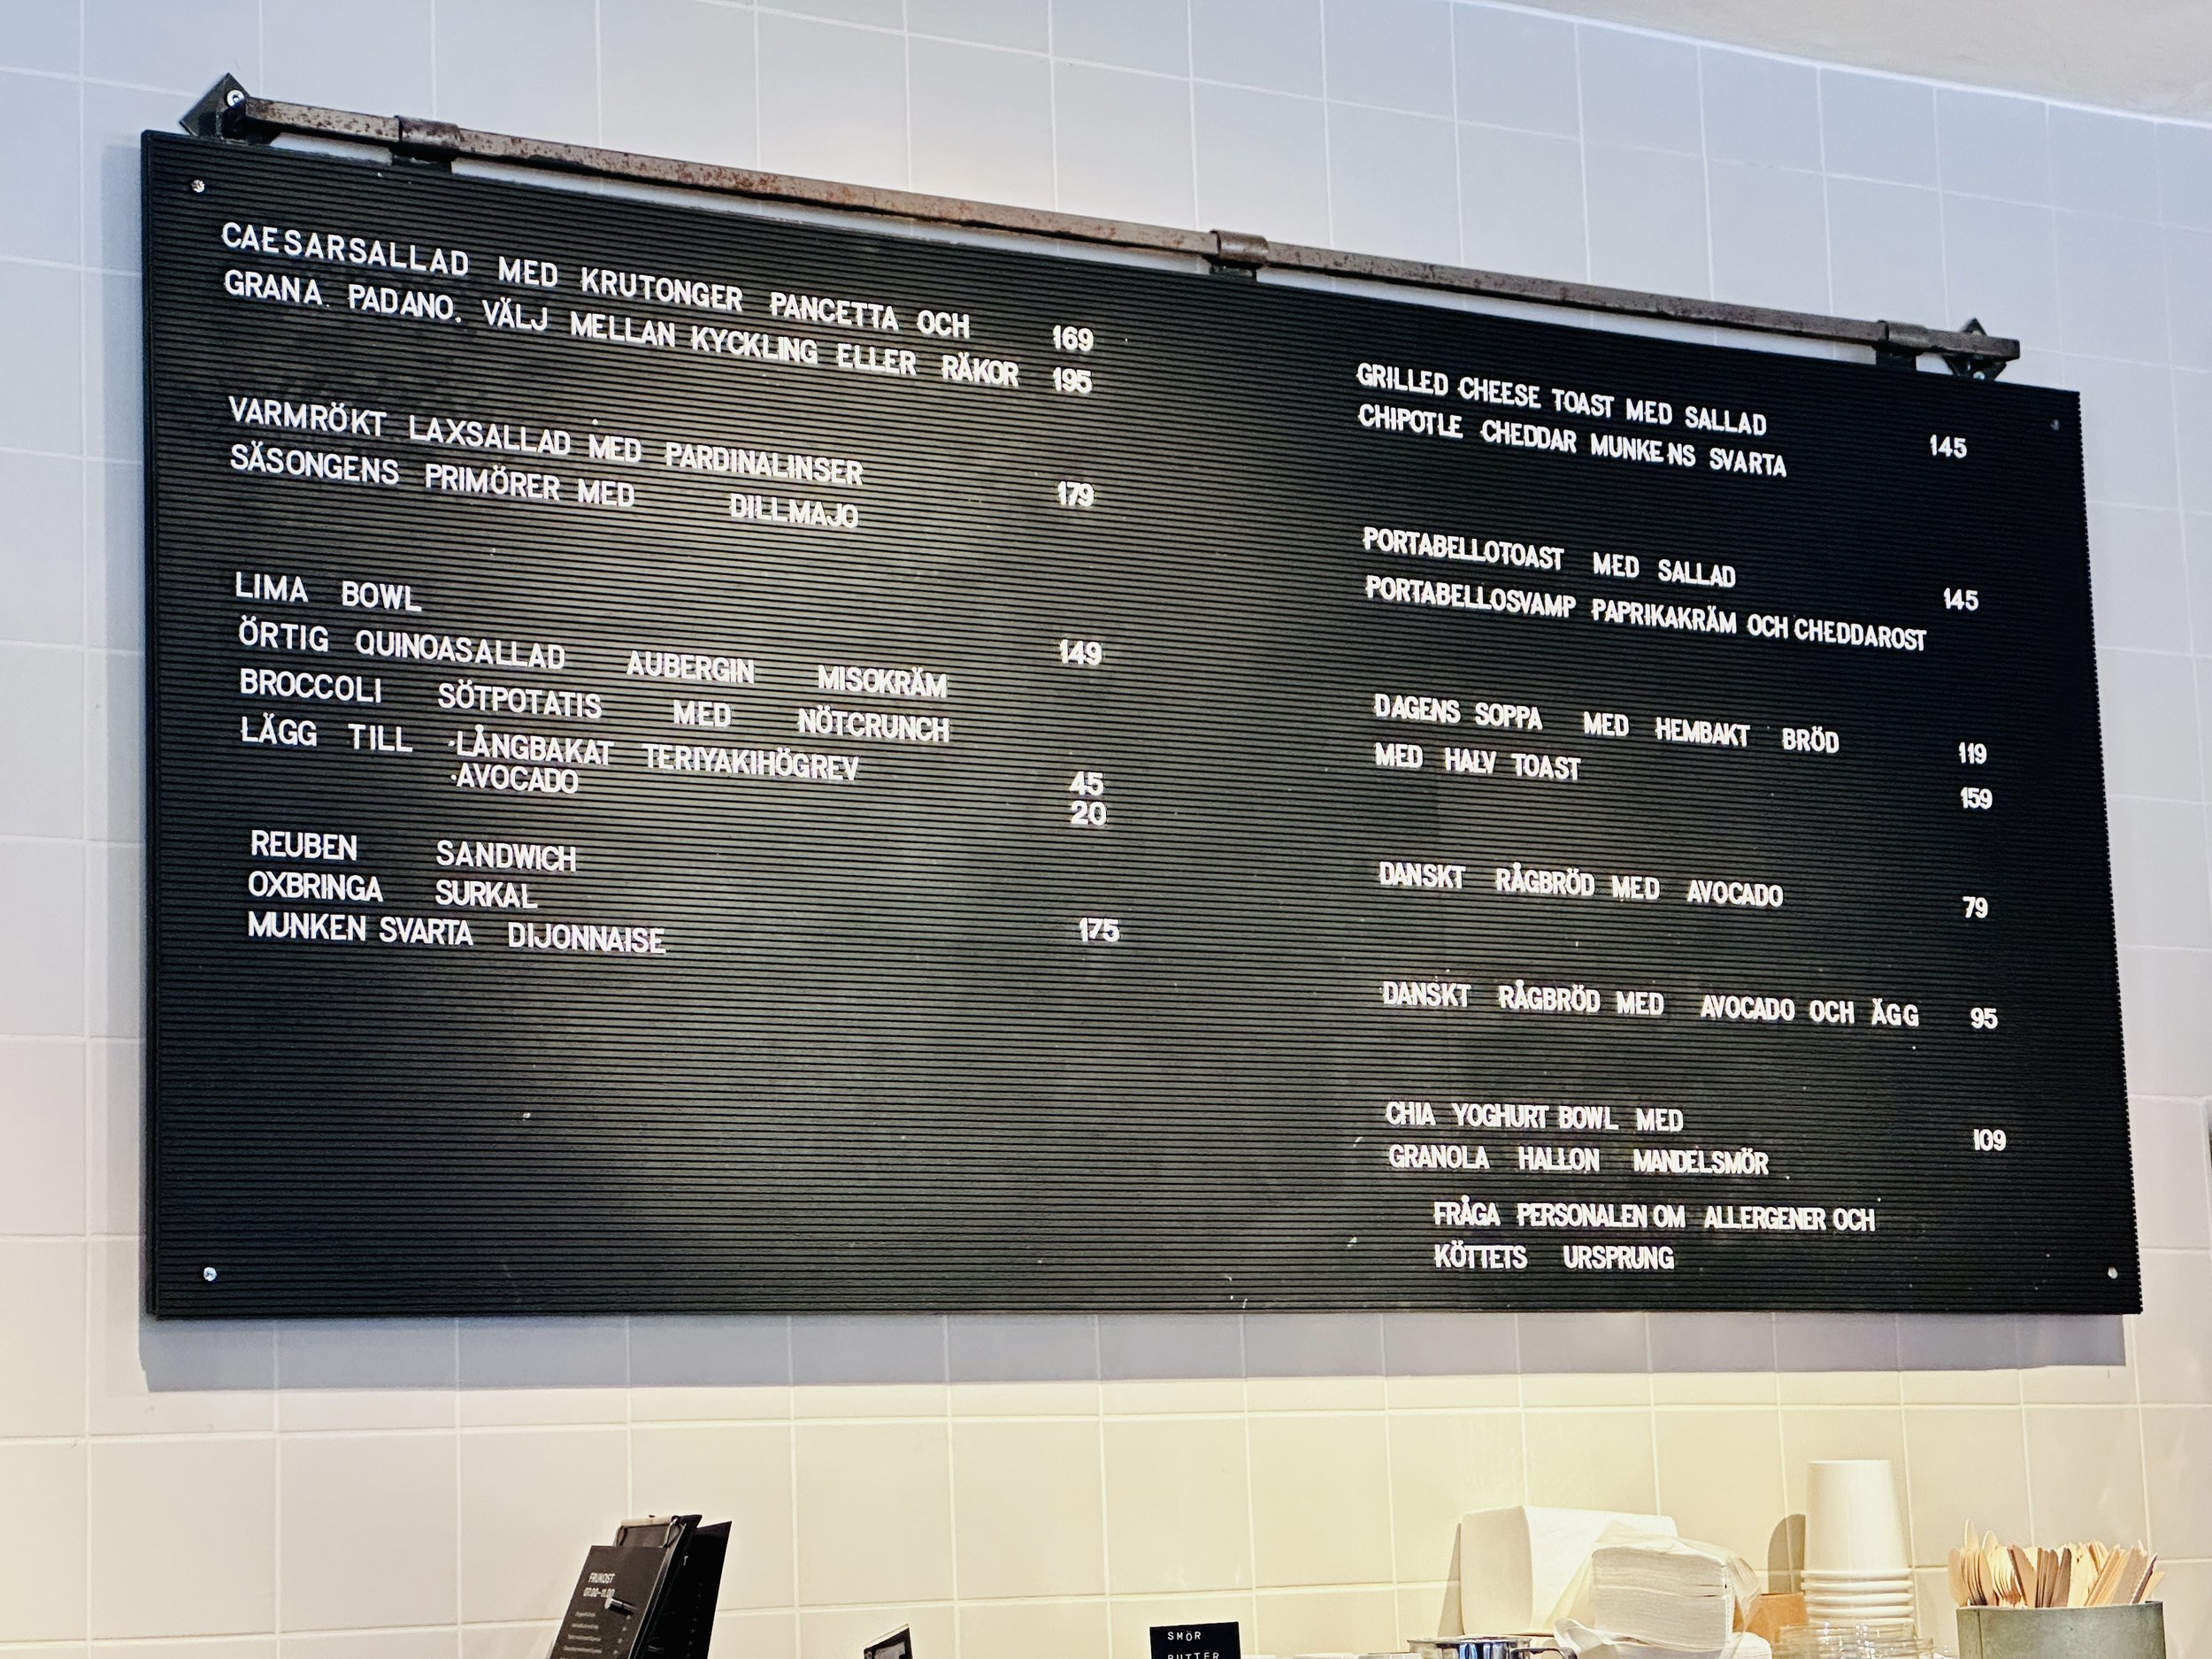 CAESARSALLAD MED KRUTONGER PANCETTA OCH 169
GRANA PADANO. VÄLJ MELLAN KYCKLING ELLER RÄKOR 195
VARMRÖKT LAXSALLAD MED PARDINALINSER
SÄSONGENS PRIMÖRER MED DILLMAJO 179
LIMA BOWL
ÖRTIG QUINOASALLAD AUBERGIN MISOKRÄM 149
BROCCOLI SÖTPOTATIS MED NÖTCRUNCH
LÄGG TILL ·LÅNGBAKAT TERIYAKIHÖGREV 45
·AVOCADO 20
REUBEN SANDWICH
OXBRINGA SURKAL
MUNKEN SVARTA DIJONNAISE 175
GRILLED CHEESE TOAST MED SALLAD 145
CHIPOTLE CHEDDAR MUNKENS SVARTA
PORTABELLOTOAST MED SALLAD 145
PORTABELLOSVAMP PAPRIKAKRÄM OCH CHEDDAROST
DAGENS SOPPA MED HEMBAKT BRÖD 119
MED HALV TOAST 159
DANSKT RÅGBRÖD MED AVOCADO 79
DANSKT RÅGBRÖD MED AVOCADO OCH ÄGG 95
CHIA YOGHURT BOWL MED 109
GRANOLA HALLON MANDELSMÖR
FRÅGA PERSONALEN OM ALLERGENER OCH
KÖTTETS URSPRUNG
FRUKOST
07.00-11.00
SMÖR
BUTTER